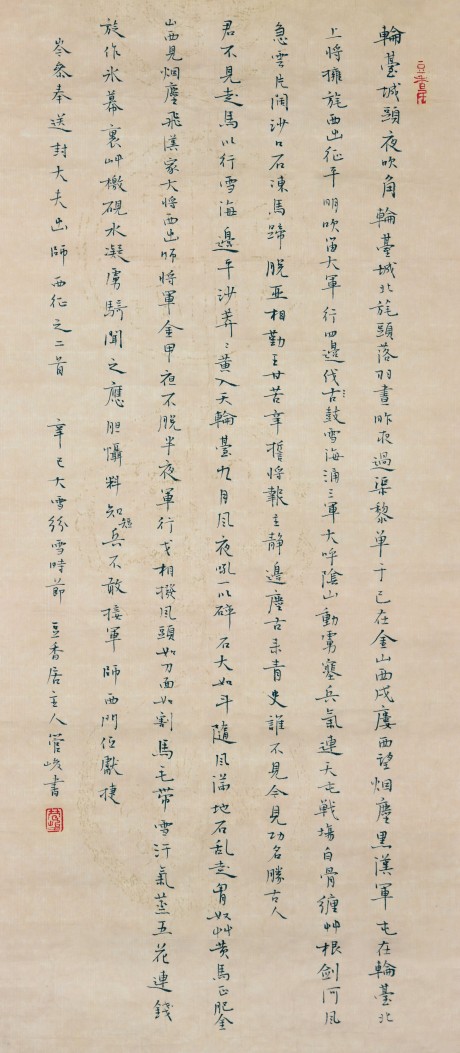 豆香居
輪臺城頭夜吹角輪臺城北旄頭落羽書昨夜過渠黎單于已在金山西戍樓西望烟塵黑漢軍屯在輪臺北
上將擁旄西出征平明吹笛大軍行四邊伐古鼓雪海涌三軍大呼陰山動虜塞兵氣連天屯戰場白骨纏艸根劍河風
急雲片闊沙口石凍馬蹄脫亞相勤王甘苦辛誓將報主靜邊塵古来青史誰不見今見功名勝古人
君不見走馬川行雪海邊平沙莽〻黃入天輪臺九月風夜吼一川碎石大如斗隨風滿地石乱走匈奴艸黃馬正肥金
山西見烟塵飛漢家大將西出師將軍金甲夜不脫半夜軍行戈相撥風頭如刀面如割馬毛帶雪汗氣蒸五花連錢
旋作冰幕裏艸檄硯水凝虜騎聞之應胆懾料知短兵不敢接軍師西門佇獻捷
岑參奉送封大夫出師西征之二首 辛巳大雪紛雪時節 豆香居主人管峻書